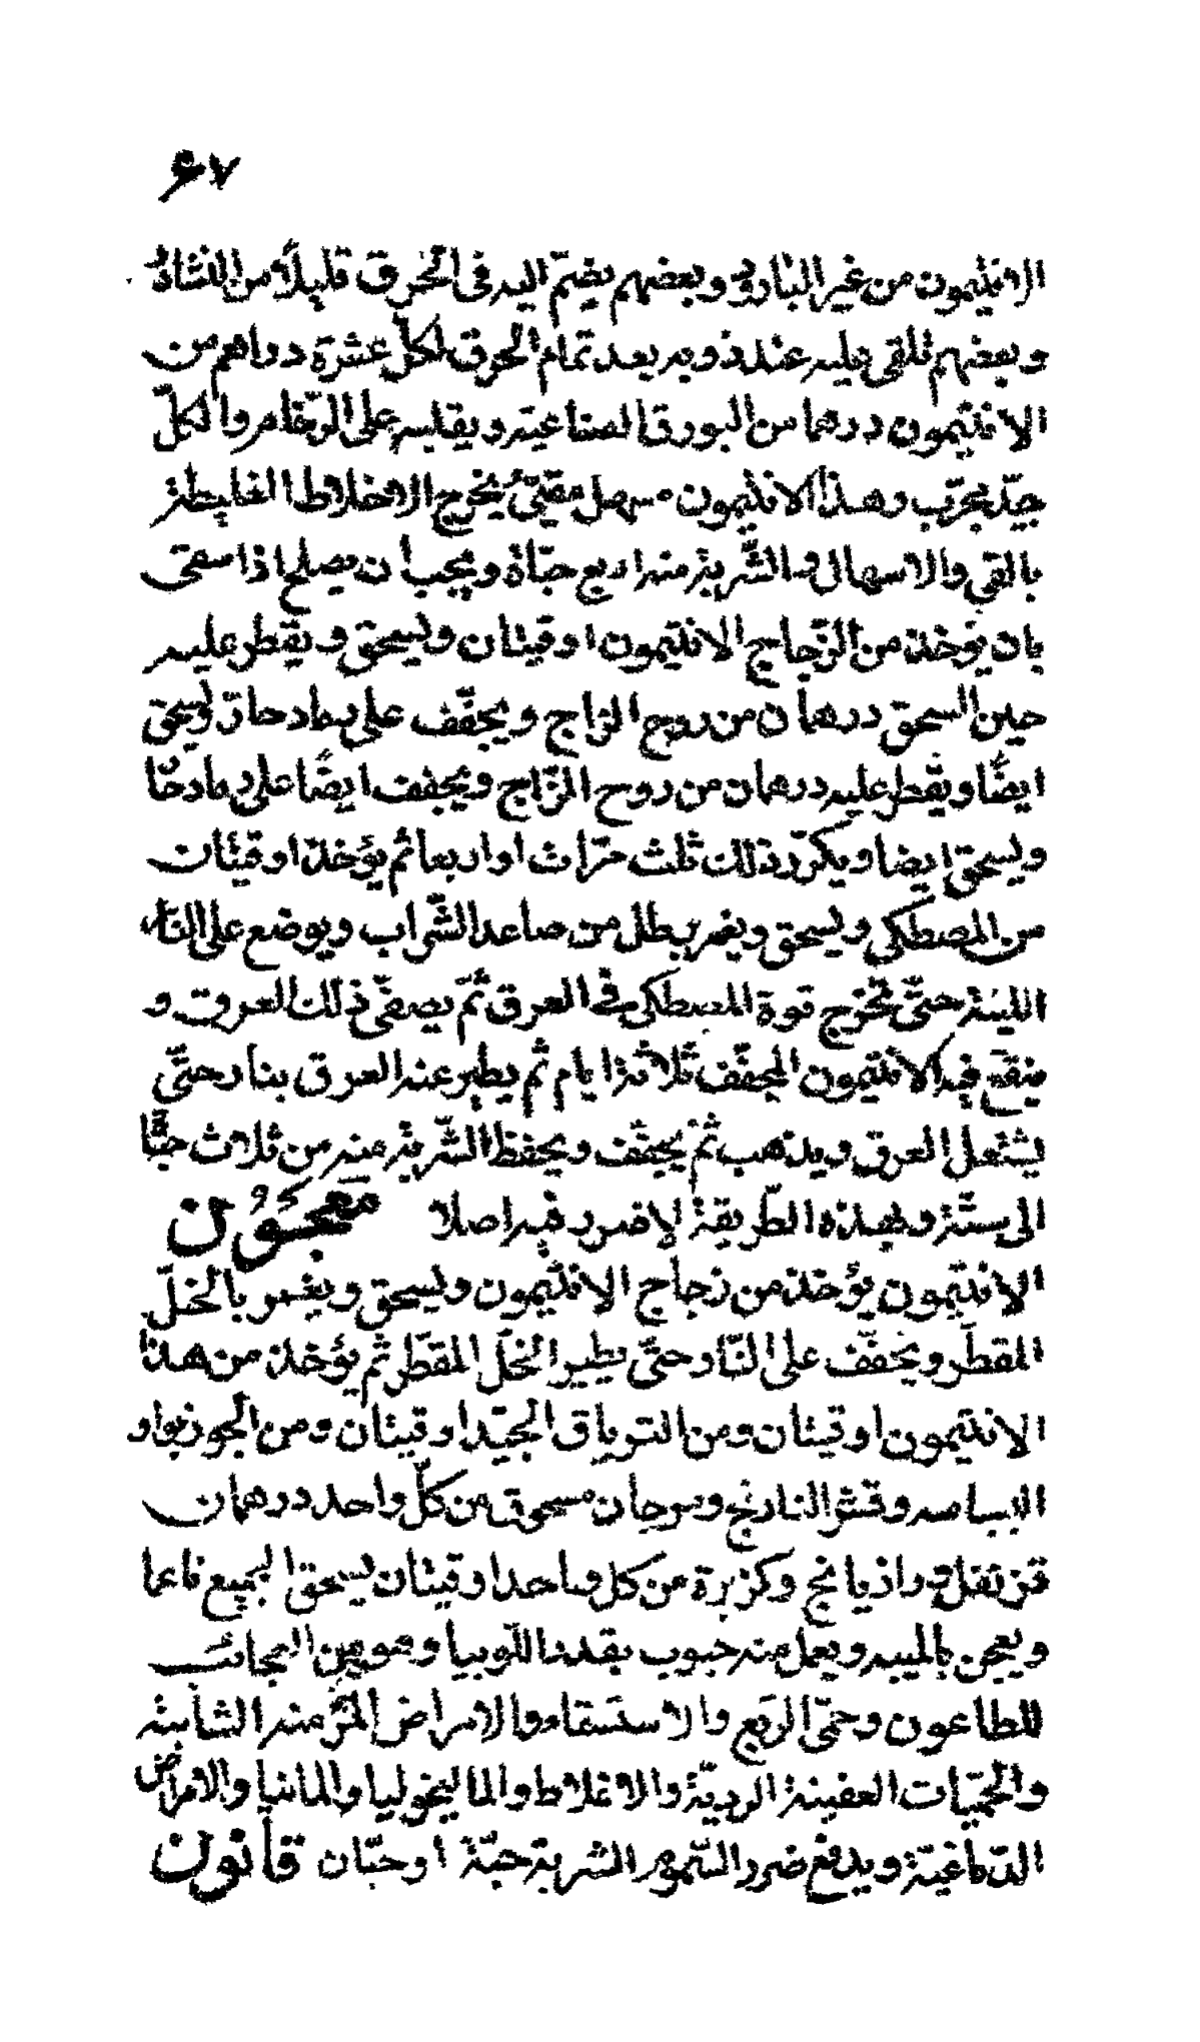 ۶۷
الانتيمون من غير البارود وبعضهم يضمّ اليه فى الحرق قليلاً من النشاة
وبعضهم يلقى عليه عند ذوبه بعد تمام الحرق لكلّ عشرة دراهم من
الانتيمون درهما من البورق الصناعية ويقلبه على الرّخام والكلّ
جيّد مجرّب وهذا الانتيمون مسهل مقيّئ يخرج الاخلاط الغليظة
بالقي والاسهال والشّربة منه اربع حبّاة ويجب ان يصلح اذا سقى
بان يؤخذ من الزّجاج الانتيمون اوقيتان ويسحق ويقطر عليه
حين السحق درهمان من روح الزاج ويجفّف على رماد حارّ ويسحق
ايضًا ويقطر عليه درهمان من روح الزّاج ويجفف ايضًا على رماد حارّ
ويسحق ايضا ويكرّر ذلك ثلث مرّات او اربعا ثم يؤخذ اوقيتان
من المصطكى ويسحق ويغمر برطل من صاعد الشّراب ويوضع على النار
اللينة حتّى تخرج قوة المصطكى فى العرق ثمّ يصفّى ذلك العرق و
ينقع فيه الانتيمون المجفّف ثلاثة ايام ثم يطير عنه العرق بنار حتّى
يشتعل العرق ويذهب ثمّ يجفّف ويحفظ الشّربة منه من ثلاث حبّا
الى ستّة وبهذه الطّريقة لا ضرر فيه اصلا معجون
الانتيمون يؤخذ من زجاج الانتيمون ويسحق ويغمر بالخلّ
المقطّر ويجفّف على النّار حتّى يطير الخلّ المقطّر ثم يؤخذ من هذا
الانتيمون اوقيتان ومن الترياق الجيّد اوقيتان ومن الجوزبوا و
البسباسه وقشر النارنج ومرجان مسحوق من كلّ واحد درهمان
قرنفل ورازيانج وكزبرة من كل واحد اوقيتان يسحق الجميع ناعما
ويعجن بالميبه ويعمل منه حبوب بقدر اللّوبيا وهو من العجائب
للطاعون وحمّى الربع والاستسقاء والامراض المزمنه الشائبة
والحمّيات العفينة الرديّة والاغلاط والماليخوليا والمانيا والامراض
الدّماغيّة ويدفع ضرر السّموم الشربة حبّة او حبّان قانون